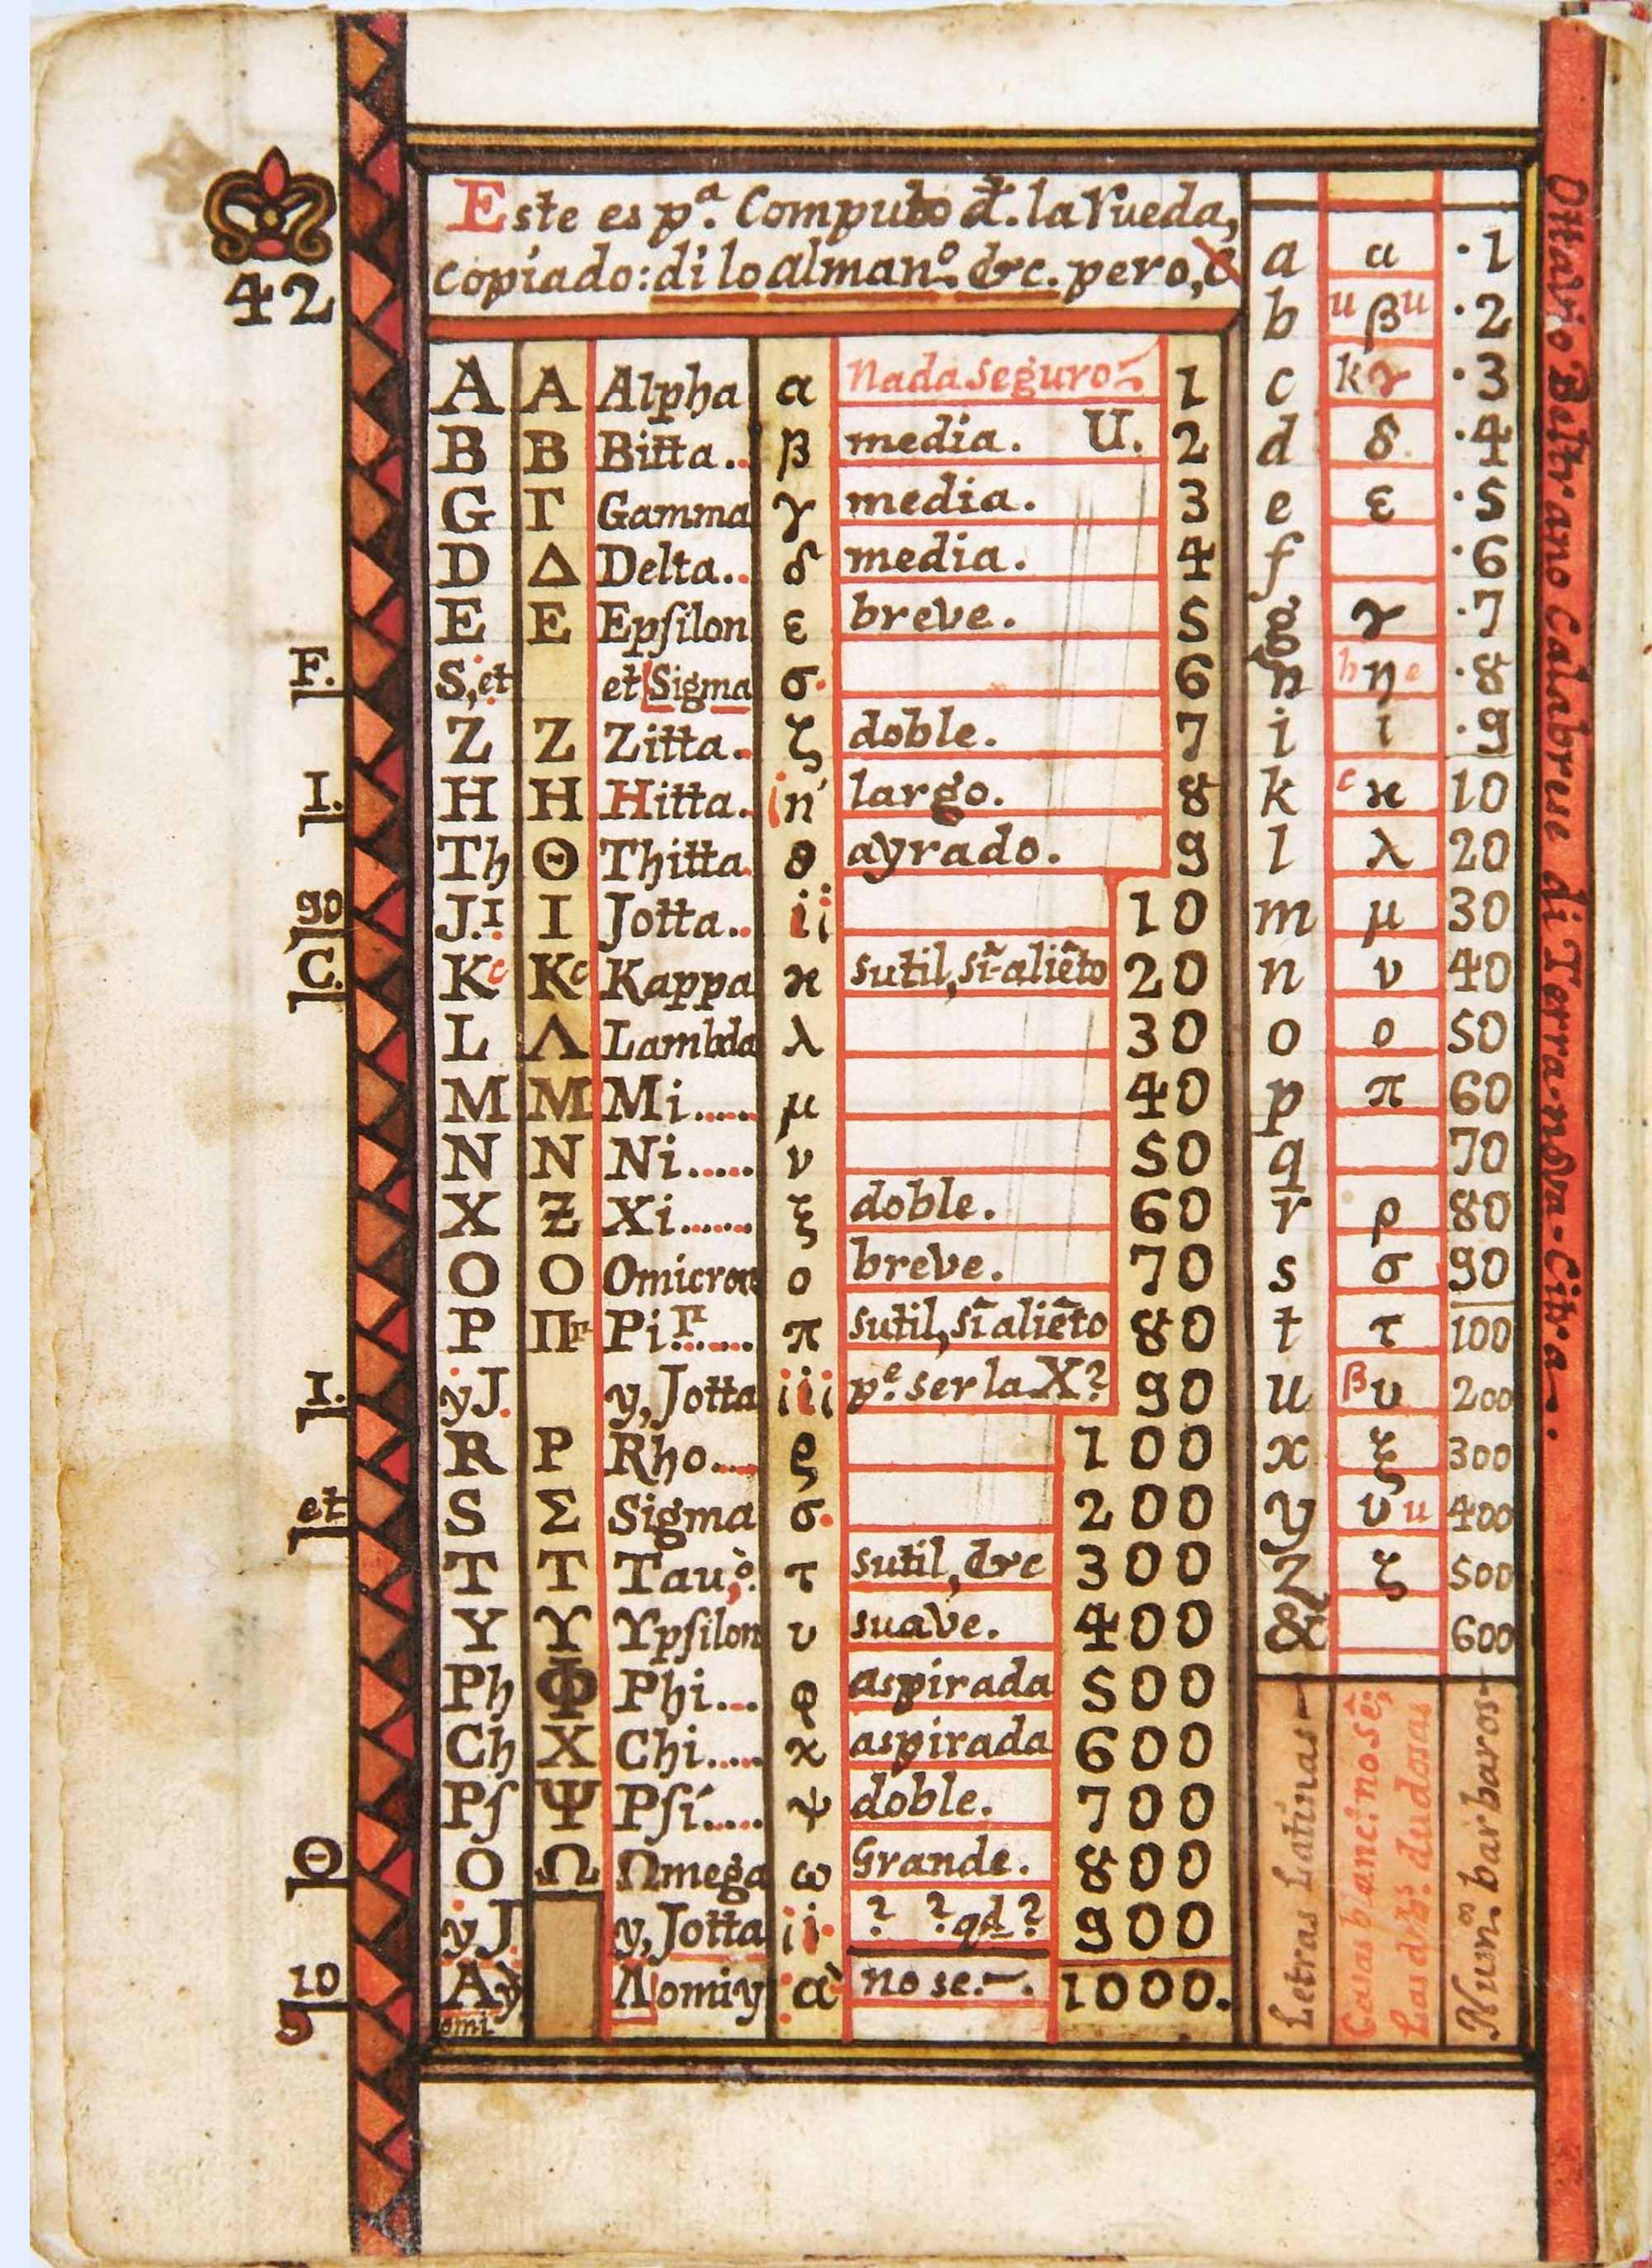 42
Este es pª. Computo đ. la rueda,
copiado: di lo alman.º &c. pero,
A A Alpha α Nada seguro 1
B B Bitta.. β media. U. 2
G Γ Gamma γ media. 3
D Δ Delta.. δ media. 4
E E Epſilon ε breve. 5
F. S,et et Sigma σ. 6
Z Z Zitta. ζ doble. 7
I. H H Hitta. í ń largo. 8
Th Θ Thitta. θ ayrado. 9
90 J.I I Jotta.. ii 10
C. Kc Kc Kappa ϰ sutil, sĩ-aliẽto 20
L Λ Lambda λ 30
M M Mi..... μ 40
N N Ni..... ν 50
X Ƶ Xi...... ξ doble. 60
O O Omicron ο breve. 70
P Πr Pi.r..... π sutil, sĩ aliẽto 80
I. yJ. y, Jotta iii pe. ser la X? 90
R P Rho.... ρ 100
et S Σ Sigma σ. 200
T T Tau,ò. τ sutil, &c 300
Y ϒ ϒpſilon υ suave. 400
Ph Φ Phi... φ aspirada 500
Ch X Chi..... χ aspirada 600
Pſ Ψ Pſí..... ψ doble. 700
Θ O Ω Ωmega ω Grande. 800
yJ. y, Jotta ii. ? ? qd? 900
10 Aÿ Λomiy ὰ no se.-. 1000.
5 omi
a α ·1
b u β u ·2
c k γ ·3
d δ. ·4
e ε ·5
f ·6
g γ ·7
h h η e ·8
i ι ·9
k c ϰ 10
l λ 20
m μ 30
n ν 40
o ο 50
p π 60
q 70
r ρ 80
s σ 90
t τ 100
u β υ 200
x ξ 300
y υ u 400
z ζ 500
& 600
Letras Latinas
Casas blancimosẽ;
Las dhs. dudosas
Num.os barbaros
Ottavio Beltrano Calabrese di Terra-nova-Citra.